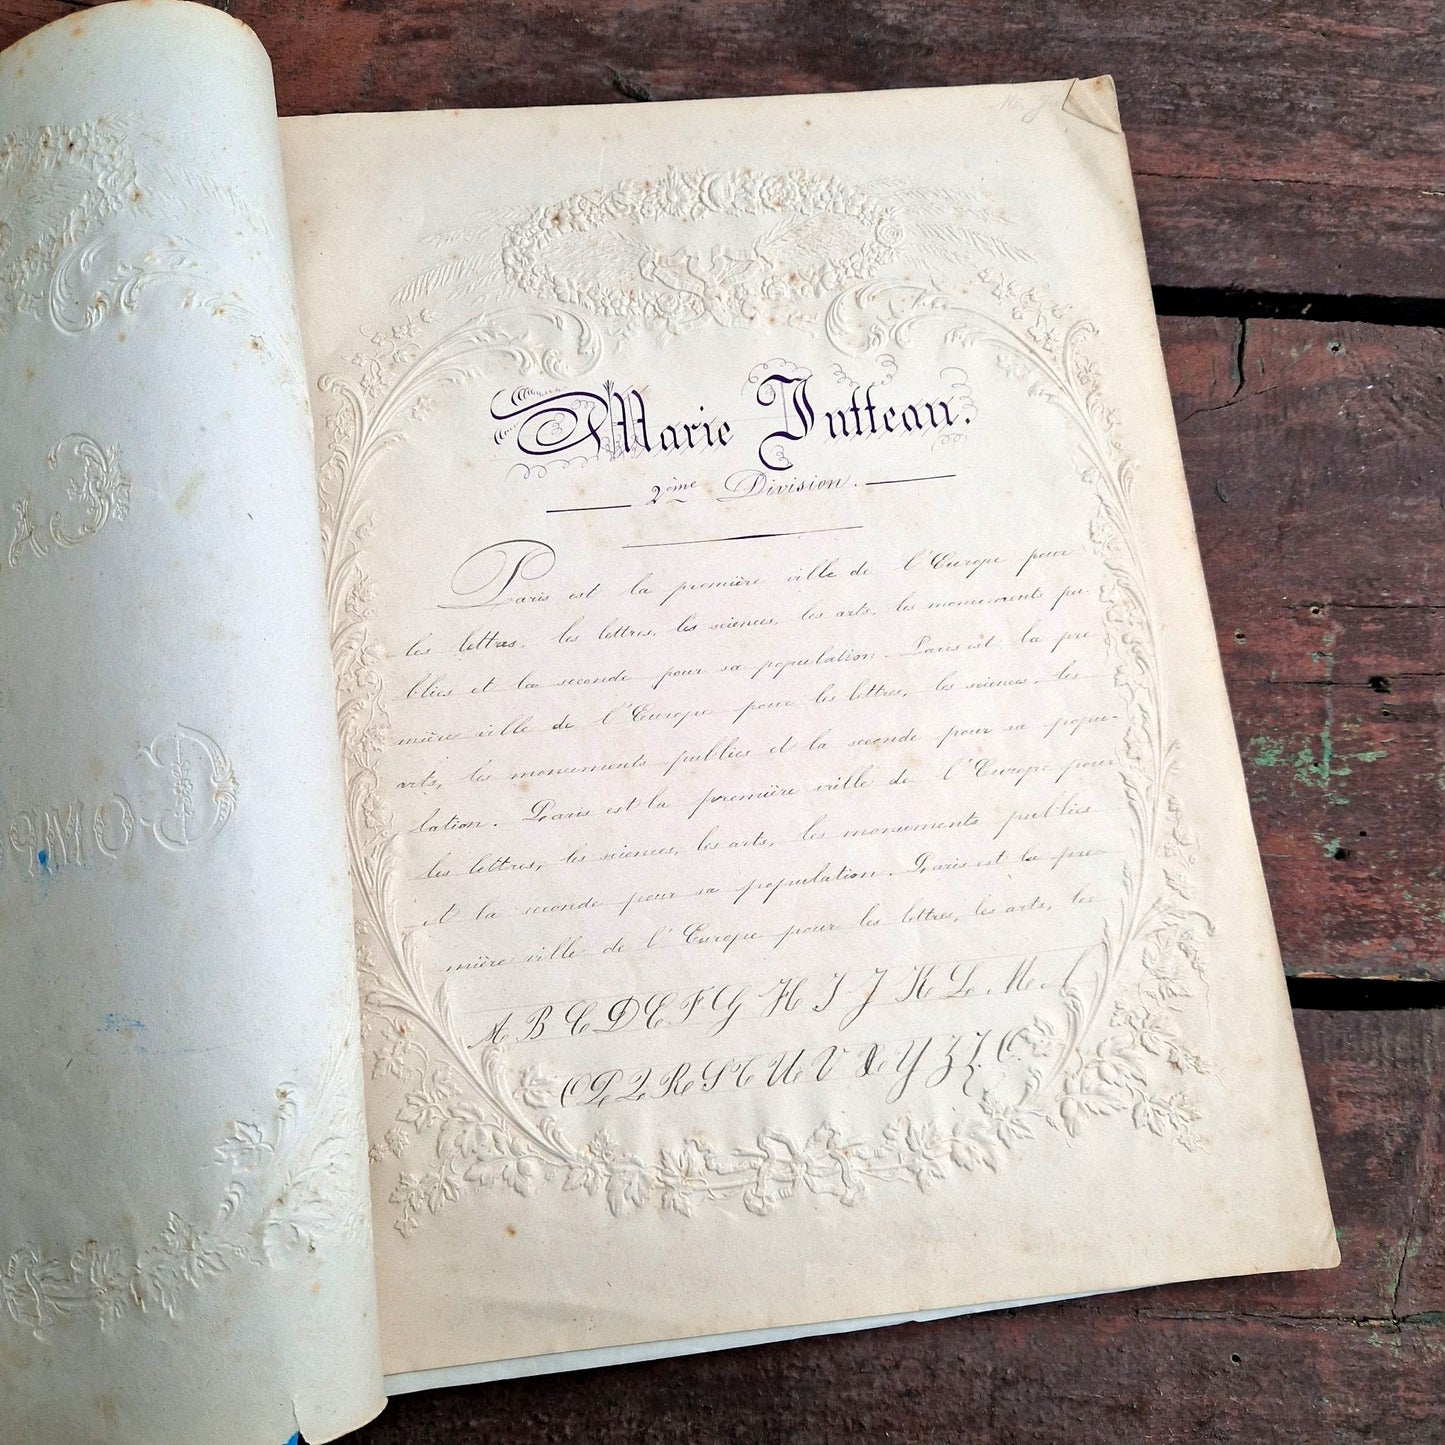 Marie Jutteau.
2ème Division.
Paris est la première ville de l'Europe pour
les lettres, les lettres, les sciences, les arts, les monuments pu-
blics et la seconde pour sa population. Paris est la pre-
mière ville de l'Europe pour les lettres, les sciences, les
arts, les monuments publics et la seconde pour sa popu-
lation. Paris est la première ville de l'Europe pour
les lettres, les sciences, les arts, les monuments publics
et la seconde pour sa population. Paris est la pre-
mière ville de l'Europe pour les lettres, les arts, les
A B C D E F G H I J K L M N
O P Q R S T U V X Y Z